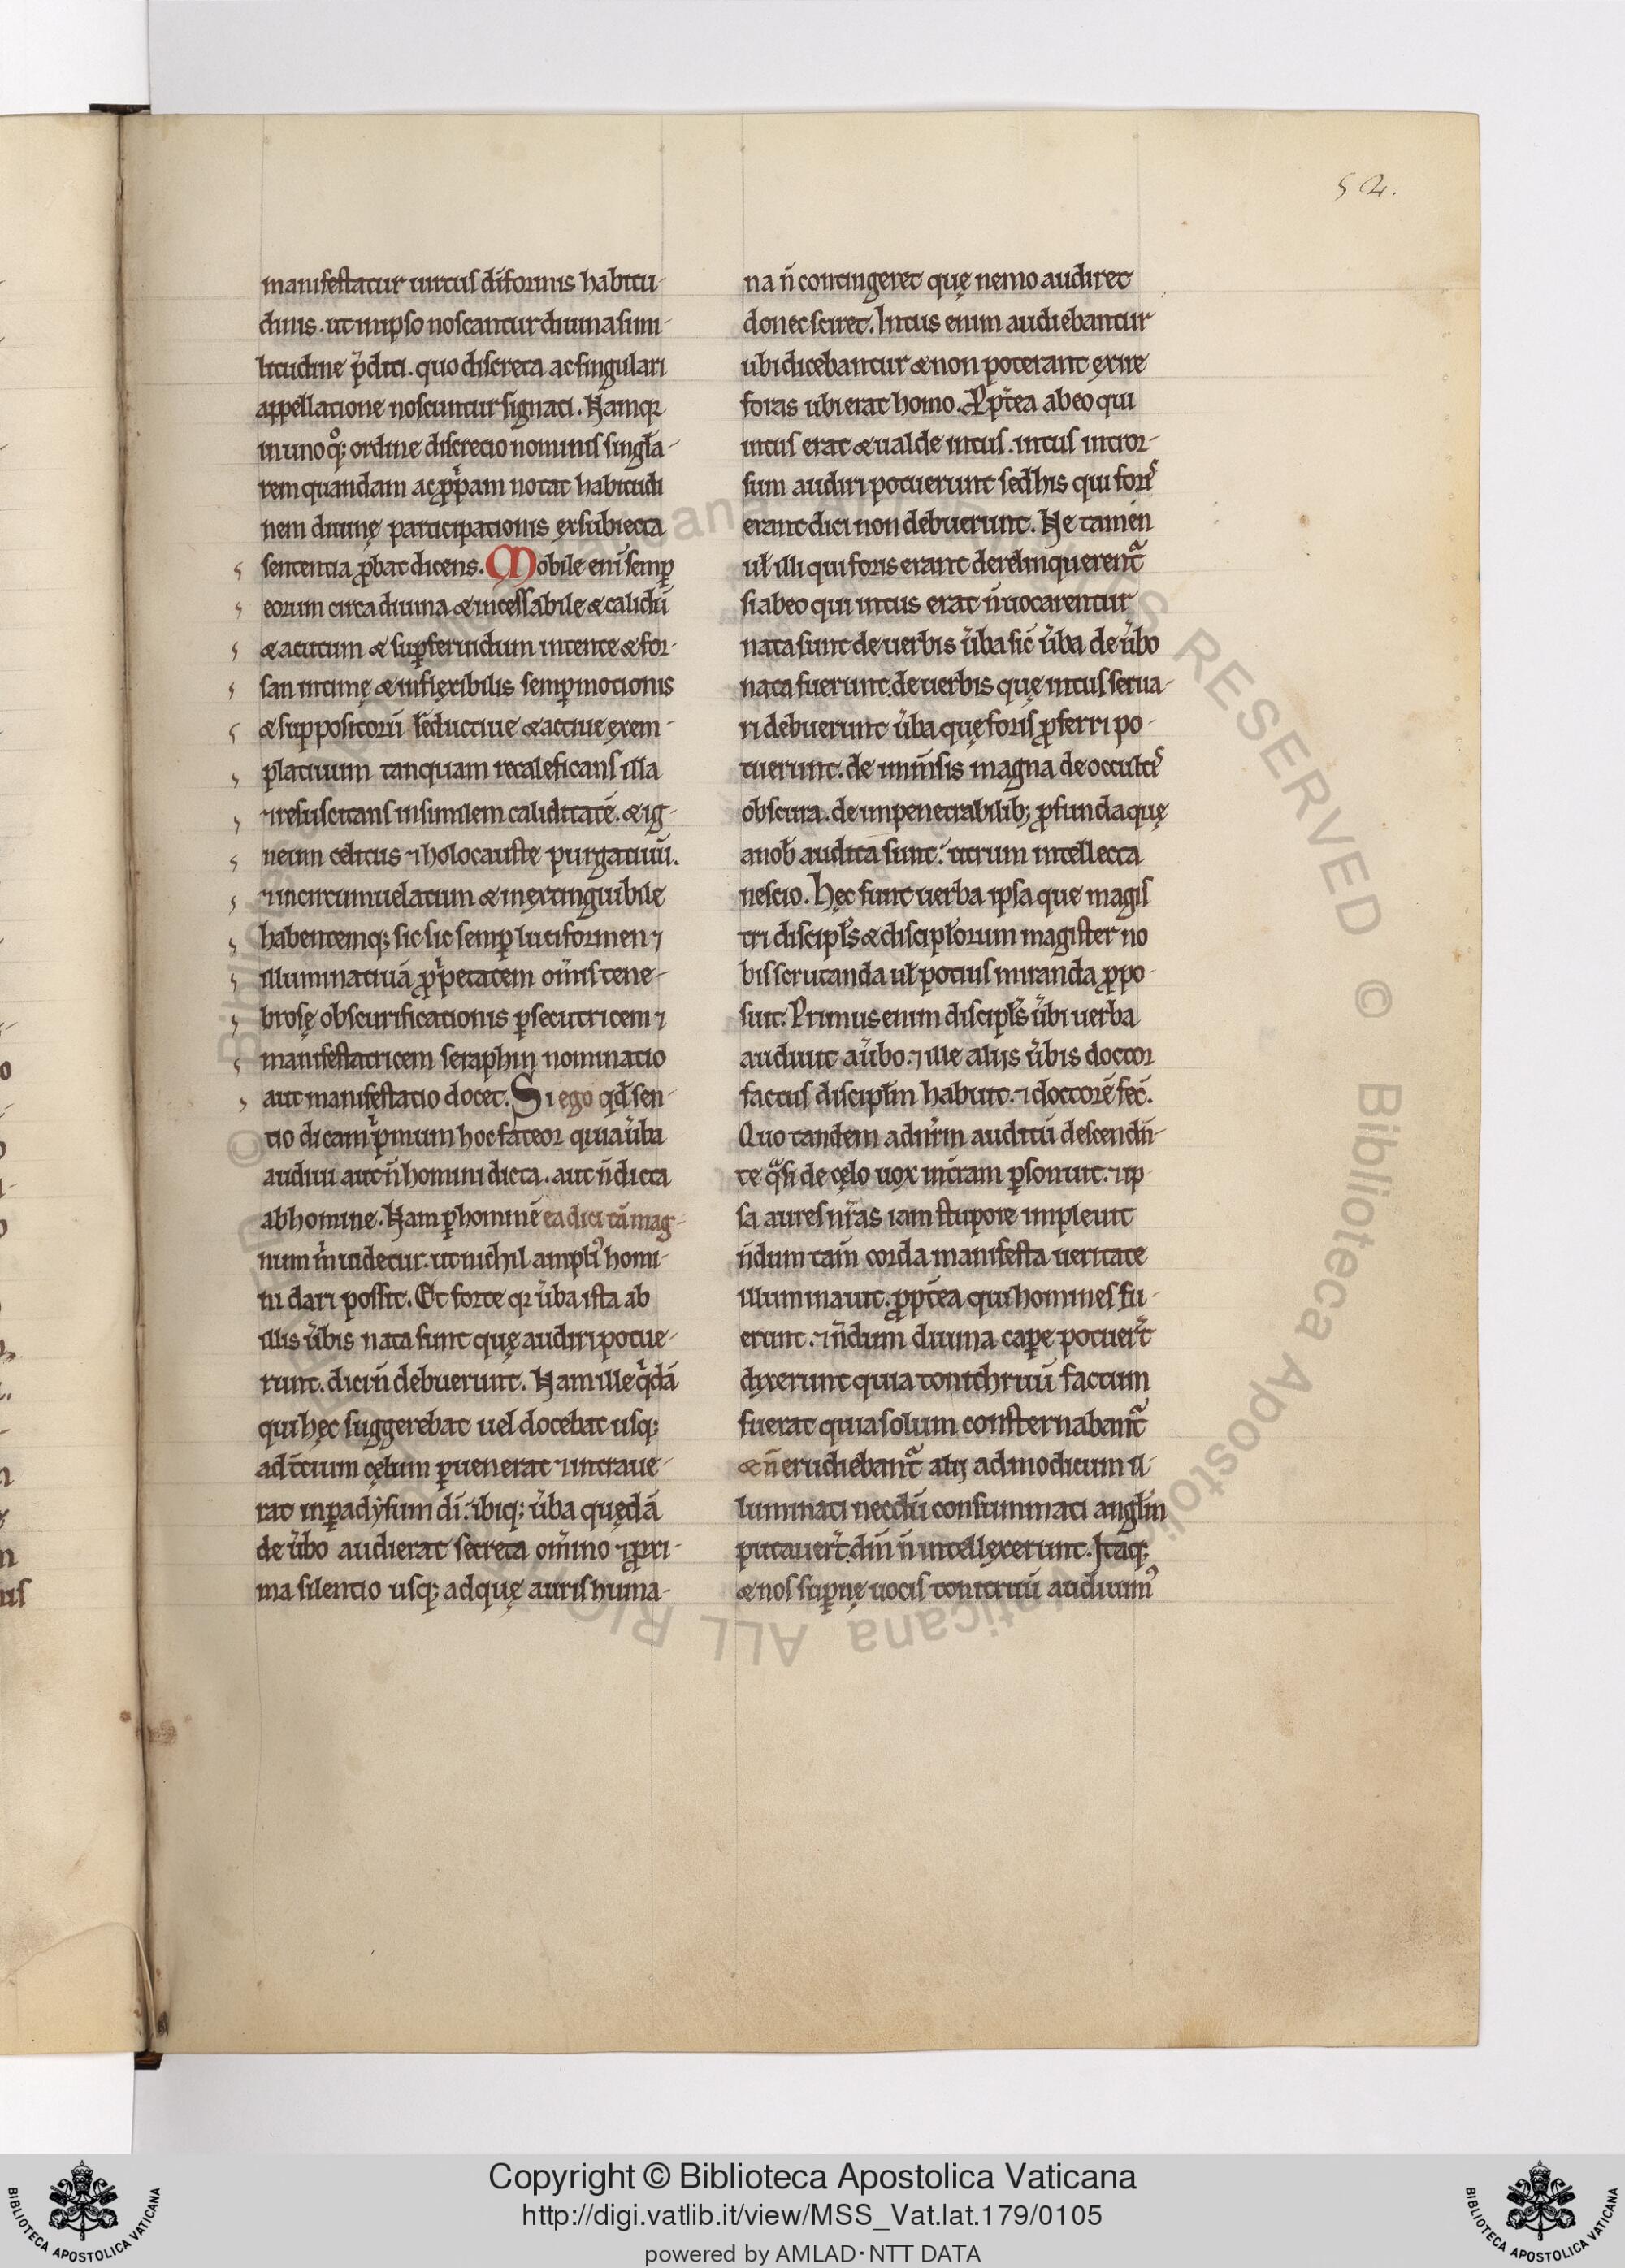 52.
manifestatur uirtus diformis habitu-
dinis. ut in ipso noscantur diuina simi-
litudine p̄diti. quo discreta ac singulari
appellatione noscuntur signati. Namq;
in uno q°q; ordine discretio nominis singl̄a-
rem quandam ac ꝓp̄am notat habitudi
nem diuinę participationis ex subiecta
sentencia ꝓbat dicens. Mobile eni semꝑ
eorum circa diuina & incessabile & calidū
& acutum & suꝑferuidum intente & for-
san intimę & inflexibilis semꝑ motionis
& suppositorū r̄eductiue & actiue exem-
platiuum tanquam recaleficans illa
⁊ resuscitans in similem caliditatē. & ig-
neum celitus ⁊ holocauste purgatiuū.
⁊ incircumuelatum & inextinguibile
habentemq; sic sic semꝑ luciformen ⁊
illuminatiuā ꝓp̄etatem om̄is tene-
brosę obscurificationis ꝑsecutricem ⁊
manifestatricem seraphin nominatio
aut manifestatio docet. Si ego qd̄ sen-
tio dicam p̄mum hoc fateor quia ūba
audiui aut n̄ homini dicta. aut n̄ dicta
ab homine. Nam ꝑ hominē ea dici tā mag-
num m̄ uidetur. ut nichil ampli' homi-
ni dari possit. Et forte q̄ ūba ista ab
illis ūbis nata sunt quę audiri potue-
runt. dici n̄ debuerunt. Nam ille q̄dā
qui hęc suggerebat uel docebat usq;
ad t̄cium cęlum ꝑuenerat ⁊ intraue-
rat in paradẏsum dī. ibiq; ūba quędā
de ūbo audierat secreta om̄ino ⁊ ꝓxi-
ma silentio usq; ad quę auris huma-
na n̄ contingeret quę nemo audiret
donec sciret. Intus enim audiebantur
ubi dicebantur & non poterant exire
foras ubi erat homo. Ppt̄ea ab eo qui
intus erat & ualde intus. intus intror-
sum audiri potuerunt sed his qui forꝭ
erant dici non debuerunt. Ne tamen
uł illi qui foris erant derelinquerent̄
si ab eo qui intus erat n̄ uocarentur
nata sunt de uerbis ūba sic ūba de ūbo
nata fuerunt. de uerbis quę intus serua-
ri debuerunt ūba quę foris ꝓferri po-
tuerunt. de inm̄sis magna de occultꝭ
obscura. de inpenetrabilib; ꝓfunda quę
a nob̄ audita sunt. utrum intellecta
nescio. Hęc sunt uerba ipsa que magis
tri discipl̄s & discipl̄orum magister no
bis scrutanda uł potius miranda ꝓpo-
suit. Primus enim discipl̄s ūbi uerba
audiuit a ūbo. ⁊ ille alijs ūbis doctor
factus discipl̄m habuit. ⁊ doctorē fec̄.
Quo tandem ad nr̄m auditū descendn̄-
te q̄si de cęlo uox in t̄ram ꝑsonuit. ⁊ ip-
sa aures nr̄as iam stupore impleuit
n̄dum tam̄ corda manifesta ueritate
illuminauit. ꝓpt̄ea qui homines fu-
erunt. ⁊ n̄dum diuina cape potuer̄t
dixerunt quia tonithruū factum
fuerat quia solum consternabant̄
& n̄ erudiebant̄ alij ad modicum il-
luminati necdū consummati angl̄m
putauer̄t dīn n̄ intellexerunt. Itaq;
& nos suꝑnę uocis tonitruū audiuim'
Copyright © Biblioteca Apostolica Vaticana
http://digi.vatlib.it/view/MSS_Vat.lat.179/0105
powered by AMLAD·NTT DATA
BIBLIOTECA APOSTOLICA VATICANA
BIBLIOTECA APOSTOLICA VATICANA